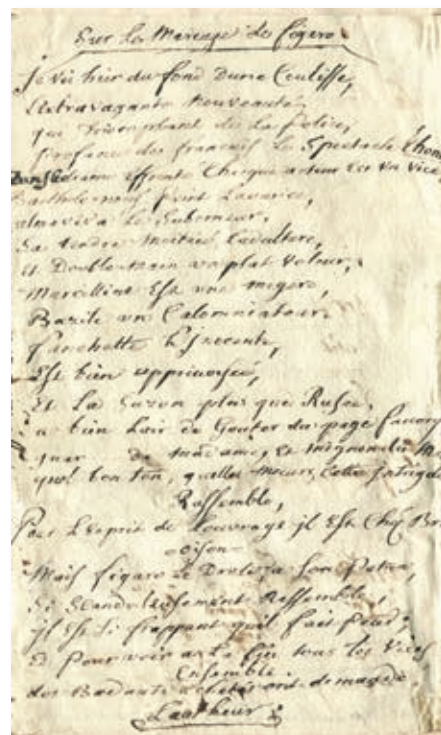 Sur Le Mariage de figaro
Je vis hier du fond D'une Coulisse,
L'extravagante Nouveauté
qui Triomphant de La Police,
profane des francois Le Spectacle
Dans ce drame effronté Chaque acteur Est un Vice,
Bartholo nous peint Lavarice,
almaviva Le Suborneur,
Sa tendre Moitiée Ladultere,
Et Doublemain un plat Voleur,
Marcelline Est une megere,
Bazile un Calomniateur,
fanchette
Est bien apprivoisée,
Et La Suzon plus que Rusée,
a bien Lair de Gouter du page favory
de madame, Et mignon du
quel bon ton, quelles Moeurs, Cette Intrigue
Rassemble,
Pour L'Esprit de Louvrage il Est Chez
oison
Mais figaro Le Drole, a Son Patron,
Si Scandaleusement Ressemble,
il Est Si frappant quil fait peur,
Et Pour voir a la fin tous les Vices
Ensemble
des Badauts ont demandé
Lautheur